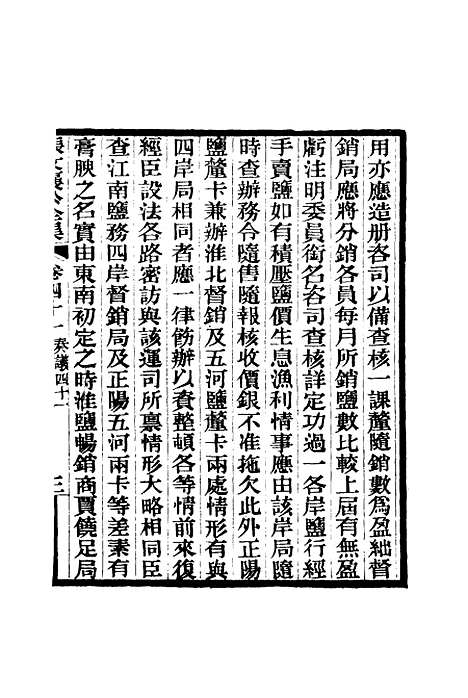 用亦應造册咨司以備查核一課釐隨銷數爲盈絀督
銷局應將分銷各員每月所銷鹽數比較上屆有無盈
虧注明委員銜名咨司查核詳定功過一各岸鹽行經
手賣鹽如有積壓鹽價生息漁利情事應由該岸局隨
時查辦務令隨售隨報核收價銀不准拖欠此外正陽
鹽釐卡兼辦淮北督銷及五河鹽釐卡兩處情形有與
四岸局相同者應一律飭辦以資整頓各等情前來復
經臣設法各路密訪與該運司所禀情形大略相同臣
查江南鹽務四岸督銷局及正陽五河兩卡等差素有
膏腴之名實由東南初定之時淮鹽暢銷商賈饒足局
張文襄公全集 卷四十一 奏議四十一 三